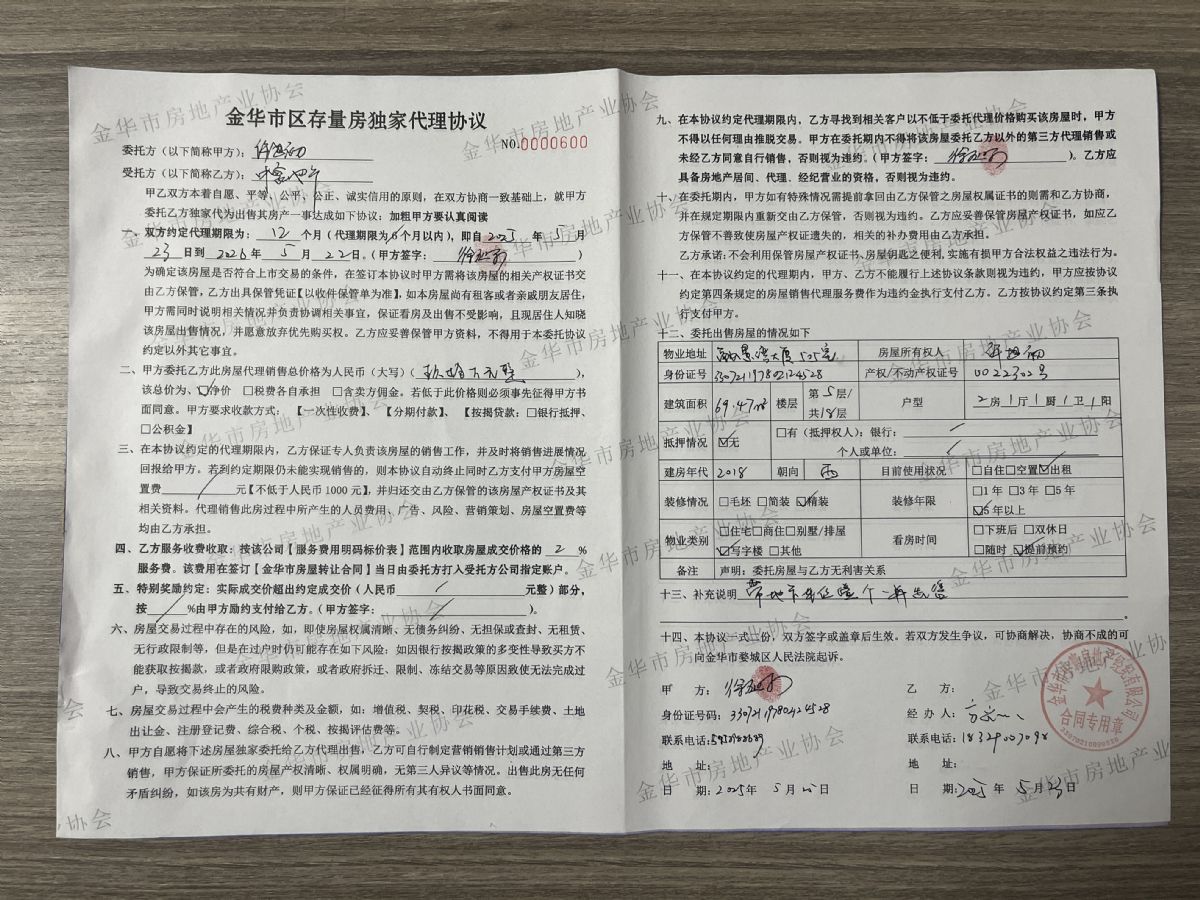 金华市区存量房独家代理协议
NO.0000600
委托方（以下简称甲方）：
受托方（以下简称乙方）：
甲乙双方本着自愿、平等、公平、公正、诚实信用的原则，在双方协商一致基础上，就甲方
委托乙方独家代为出售其房产一事达成如下协议：加粗甲方要认真阅读
一、双方约定代理期限为：12 个月（代理期限为6个月以内），即自2025年5月
23日到2026年5月22日。（甲方签字：）
为确定该房屋是否符合上市交易的条件，在签订本协议时甲方需将该房屋的相关产权证书交
由乙方保管，乙方出具保管凭证【以收件保管单为准】，如本房屋尚有租客或者亲戚朋友居住，
甲方需同时说明相关情况并负责协调相关事宜，保证看房及出售不受影响，且现居住人知晓
该房屋出售情况，并愿意放弃优先购买权。乙方应妥善保管甲方资料，不得用于本委托协议
约定以外其它事宜。
二、甲方委托乙方此房屋代理销售总价格为人民币（大写）（），
该总价为、☑净价 □税费各自承担 □含卖方佣金。若低于此价格则必须事先征得甲方书
面同意。甲方要求收款方式：【一次性收费】、【分期付款】、【按揭贷款：□银行抵押、
□公积金】
三、在本协议约定的代理期限内，乙方保证专人负责该房屋的销售工作，并及时将销售进展情况
回报给甲方。若到约定期限仍未能实现销售的，则本协议自动终止同时乙方支付甲方房屋空
置费 / 元【不低于人民币1000元】，并归还交由乙方保管的该房屋产权证书及其
相关资料。代理销售此房过程中所产生的人员费用、广告、风险、营销策划、房屋空置费等
均由乙方承担。
四、乙方服务收费收取：按该公司【服务费用明码标价表】范围内收取房屋成交价格的 2 %
服务费。该费用在签订【金华市房屋转让合同】当日由委托方打入受托方公司指定账户。
五、特别奖励约定：实际成交价超出约定成交价（人民币 / 元整）部分，
按 / %由甲方励约支付给乙方。（甲方签字： / ）。
六、房屋交易过程中存在的风险，如，即使房屋权属清晰、无债务纠纷、无担保或查封、无租赁、
无行政限制等，但是在过户时仍可能存在如下风险：如因银行按揭政策的多变性导致买方不
能获取按揭款，或者政府限购政策，或者政府拆迁、限制、冻结交易等原因致使无法完成过
户，导致交易终止的风险。
七、房屋交易过程中会产生的税费种类及金额，如：增值税、契税、印花税、交易手续费、土地
出让金、注册登记费、综合税、个税、按揭评估费等。
八、甲方自愿将下述房屋独家委托给乙方代理出售，乙方可自行制定营销销售计划或通过第三方
销售，甲方保证所委托的房屋产权清晰、权属明确，无第三人异议等情况。出售此房无任何
矛盾纠纷，如该房为共有财产，则甲方保证已经征得所有其有权人书面同意。
九、在本协议约定代理期限内，乙方寻找到相关客户以不低于委托代理价格购买该房屋时，甲方
不得以任何理由推脱交易。甲方在委托期内不得将该房屋委托乙方以外的第三方代理销售或
未经乙方同意自行销售，否则视为违约。（甲方签字：）。乙方应
具备房地产居间、代理、经纪营业的资格，否则视为违约。
十、在委托期内，甲方如有特殊情况需提前拿回由乙方保管之房屋权属证书的则需和乙方协商，
并在规定期限内重新交由乙方保管，否则视为违约。乙方应妥善保管房屋产权证书，如应乙
方保管不善致使房屋产权证遗失的，相关的补办费用由乙方承担。
乙方承诺:不会利用保管房屋产权证书、房屋钥匙之便利，实施有损甲方合法权益之违法行为。
十一、在本协议约定的代理期内，甲方、乙方不能履行上述协议条款则视为违约，甲方应按协议
约定第四条规定的房屋销售代理服务费作为违约金执行支付乙方。乙方按协议约定第三条执
行支付甲方。
十二、委托出售房屋的情况如下
物业地址 525室 房屋所有权人
身份证号 330721197802124528 产权/不动产权证号 0022302号
建筑面积 69.47m² 楼层 第5层/共18层 户型 2房1厅1厨1卫1阳
抵押情况 ☑无 □有（抵押权人）：银行： /
个人或单位： /
建房年代 2018 朝向 西 目前使用状况 □自住□空置☑出租
装修情况 □毛坯 □简装 ☑精装 装修年限 □1年 □3年 □5年
☑6年以上
物业类别 □住宅□商住□别墅/排屋
☑写字楼 □其他 看房时间 □下班后 □双休日
□随时 ☑提前预约
备注 声明：委托房屋与乙方无利害关系
十三、补充说明
十四、本协议一式二份，双方签字或盖章后生效。若双方发生争议，可协商解决，协商不成的可
向金华市婺城区人民法院起诉。
甲 方：
身份证号码：330721197802124528
联系电话：
地 址：
日 期：2025年5月
乙 方：
经 办 人：
联系电话：18329007098
地 址：
日 期：2025年5月23日
合同专用章
金华市房地产业协会